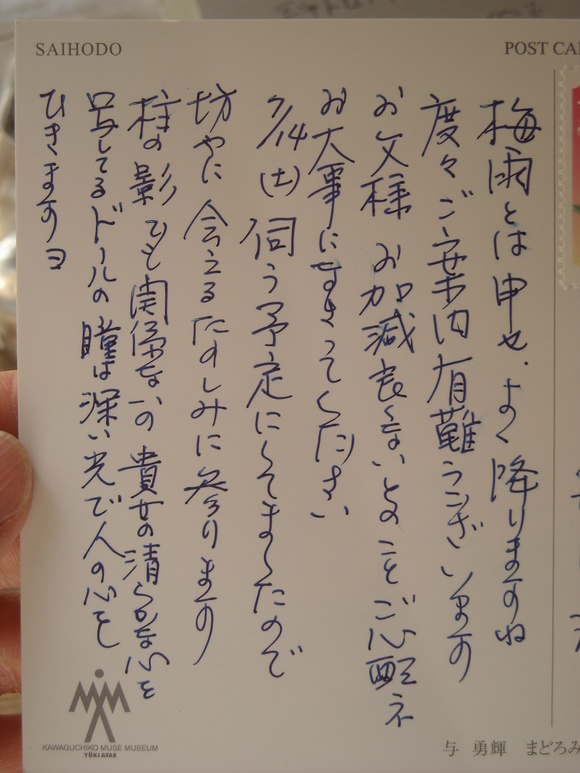 SAIHODO
POST CA
梅雨とは申せ、よく降りますね
度々ご案内有難うございます
お父様 お加減良くないとのこと ご心配ネ
お大事になさってください
7/14(土) 伺う予定にしてましたので
坊やに会えるたのしみに参ります
柱の影 でも関係ないの 貴女の清らかな心を
写してるドールの瞳は深い光で人の心を
ひきますヨ
KAWAGUCHIKO MUSE MUSEUM
YUKI ATAE
与 勇輝 まどろみ